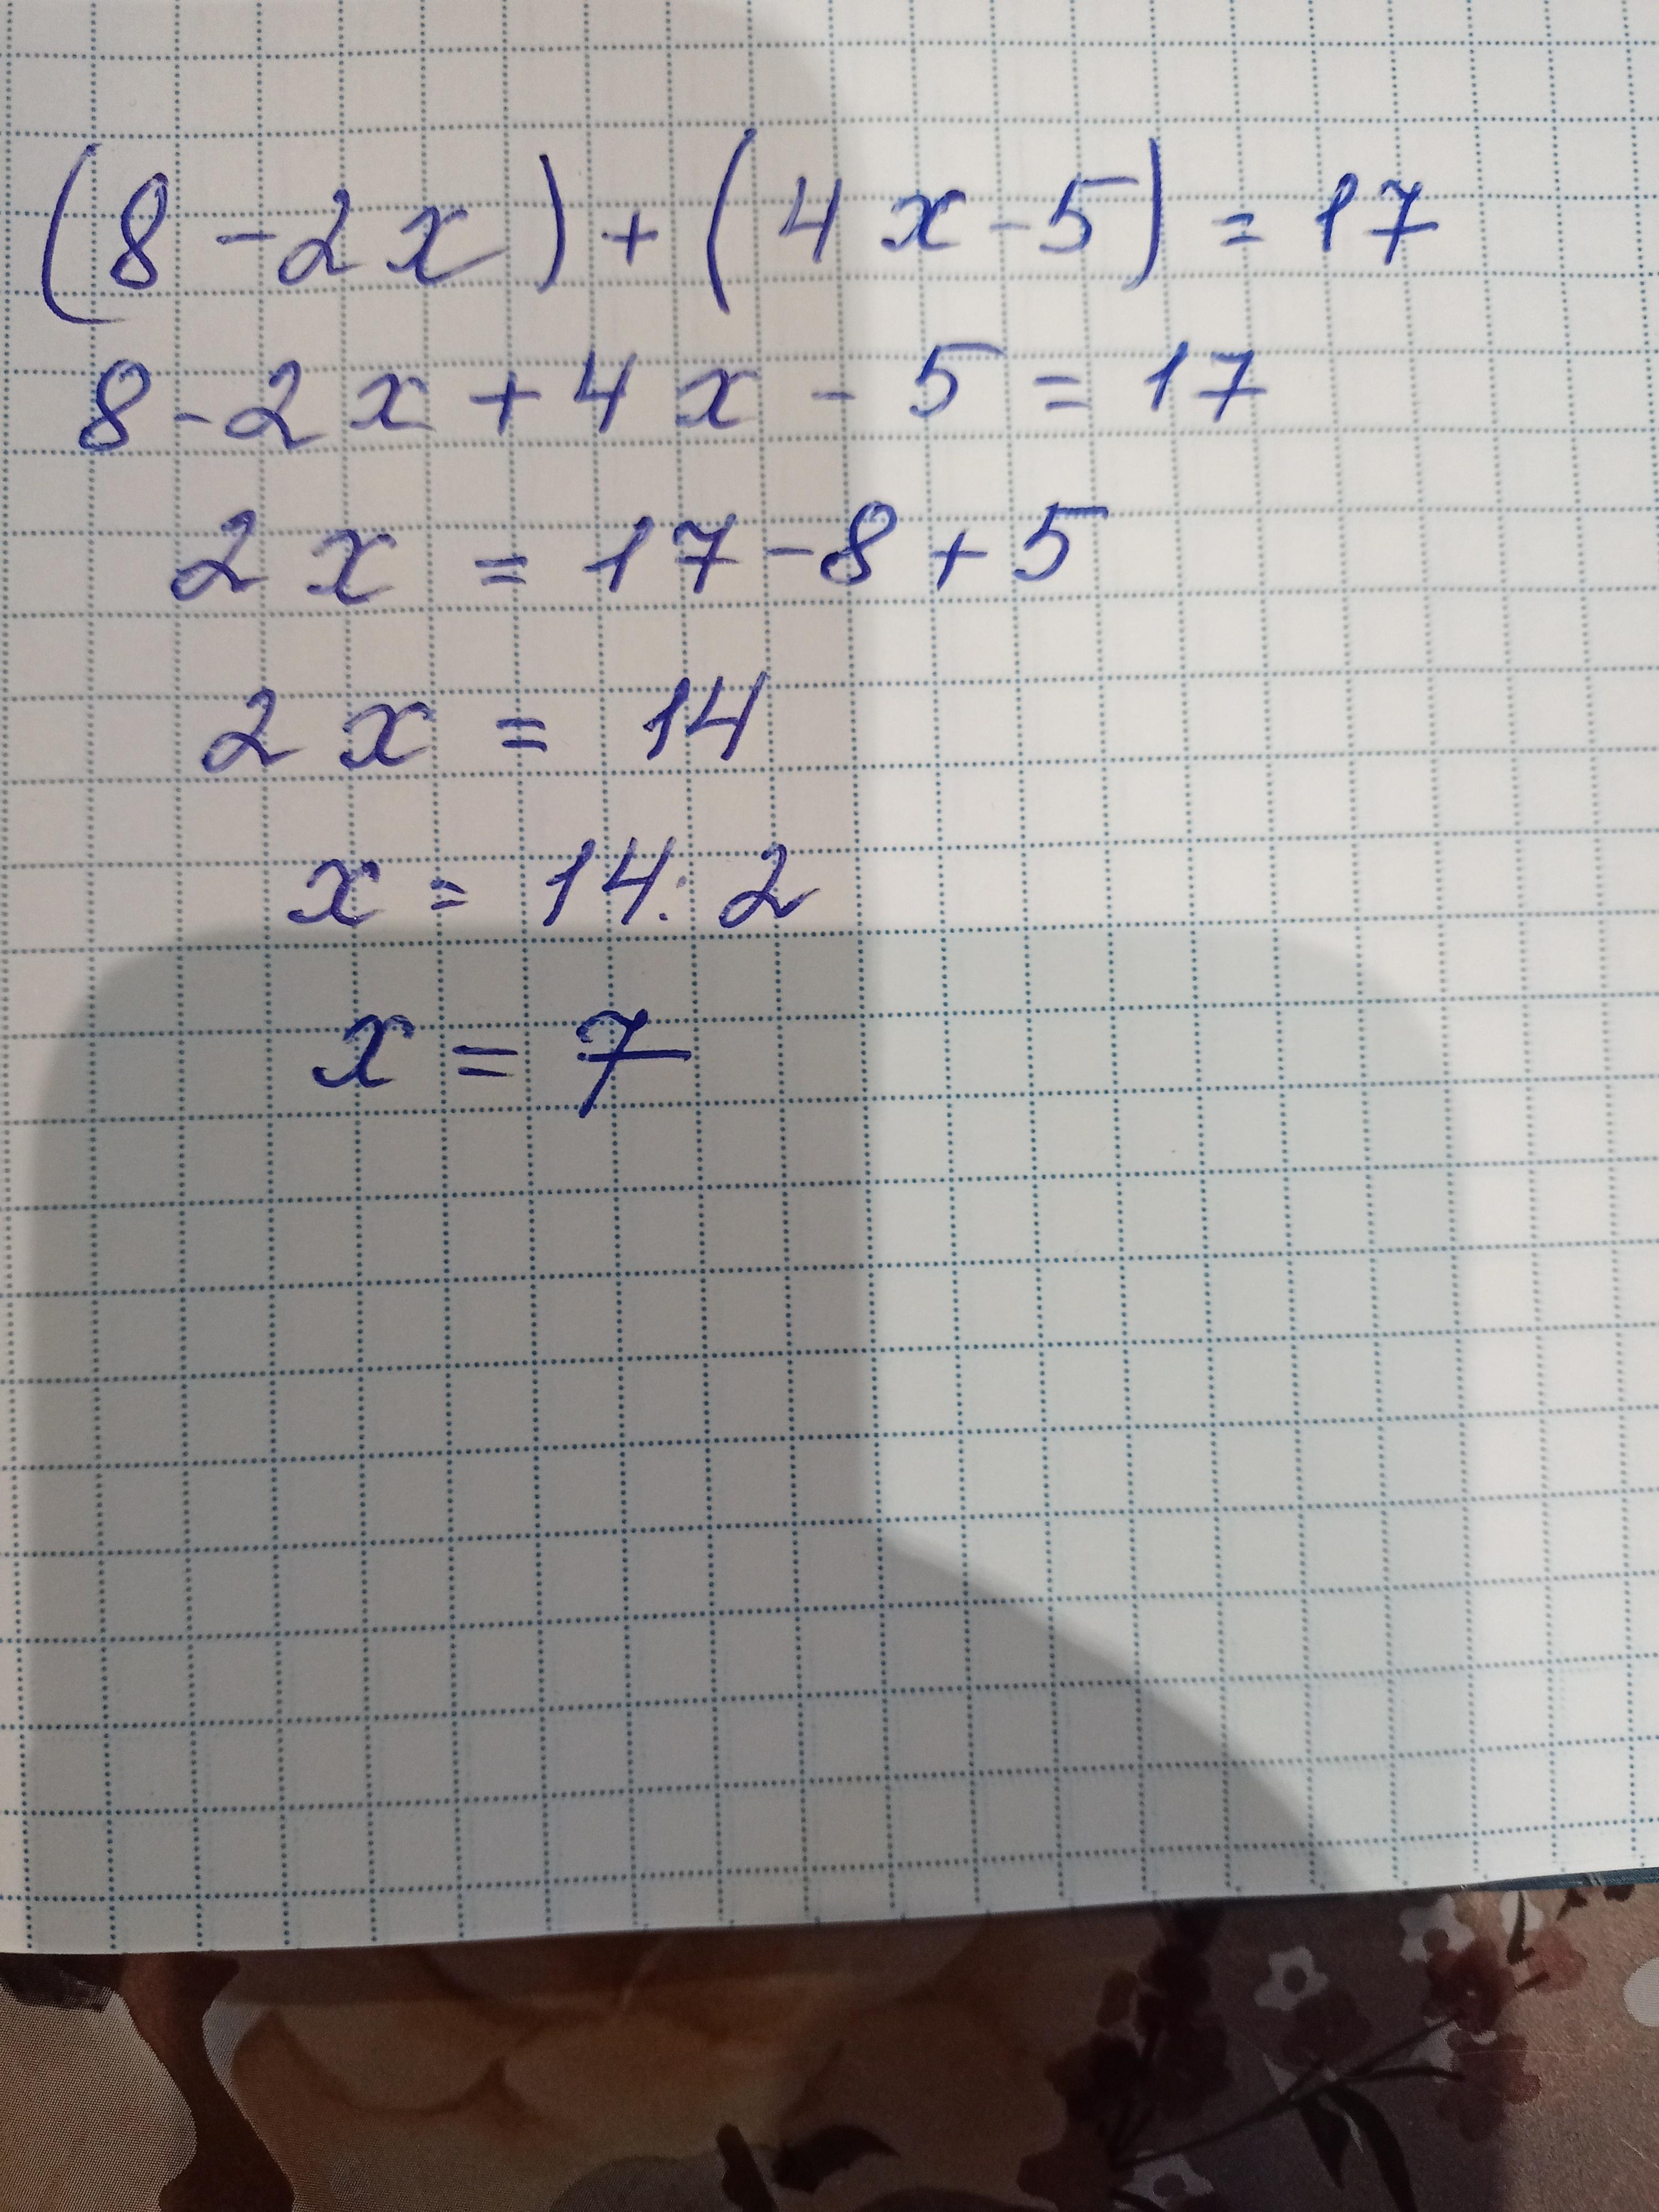 (8-2x)+(4x-5)=17
8-2x+4x-5=17
2x=17-8+5
2x=14
x=14:2
x=7